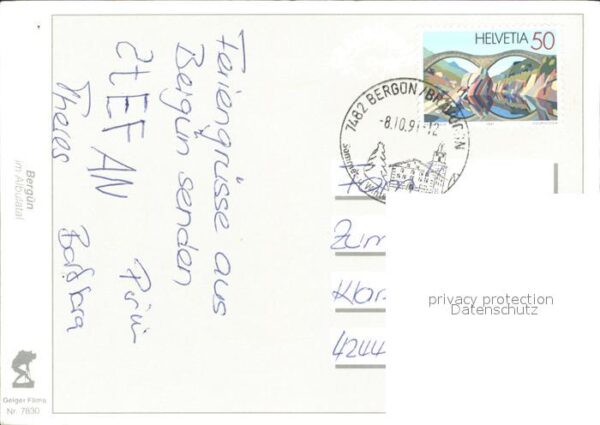 Feriengrüsse aus
Bergün senden
STEFAN
Theres Barbara
HELVETIA 50
7482 BERGÜN/BRAVUOGN
-8.10.91-12
Zum
4244
privacy protection
Datenschutz
Bergün
im Albulatal
Geiger Films
Nr. 7830